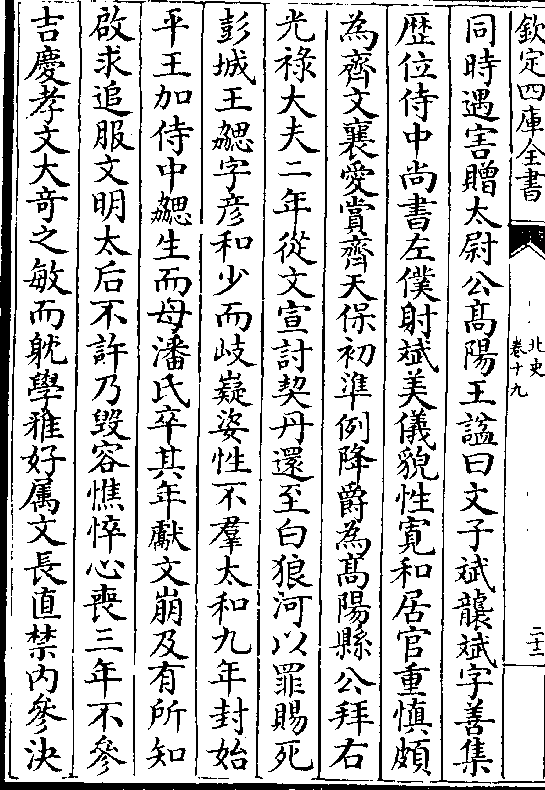 欽定四庫全書
北史
卷十九
二十二
同時遇害贈太尉公髙陽王諡曰文子斌襲斌字善集
歴位侍中尚書左僕射斌美儀貌性寛和居官重慎頗
為齊文襄愛賞齊天保初準例降爵為髙陽縣公拜右
光祿大夫二年從文宣討契丹還至白狼河以罪賜死
彭城王勰字彦和少而岐嶷姿性不羣太和九年封始
平王加侍中勰生而母潘氏卒其年獻文崩及有所知
啟求追服文明太后不許乃毁容憔悴心喪三年不參
吉慶孝文大奇之敏而躭學雅好属文長直禁内參決